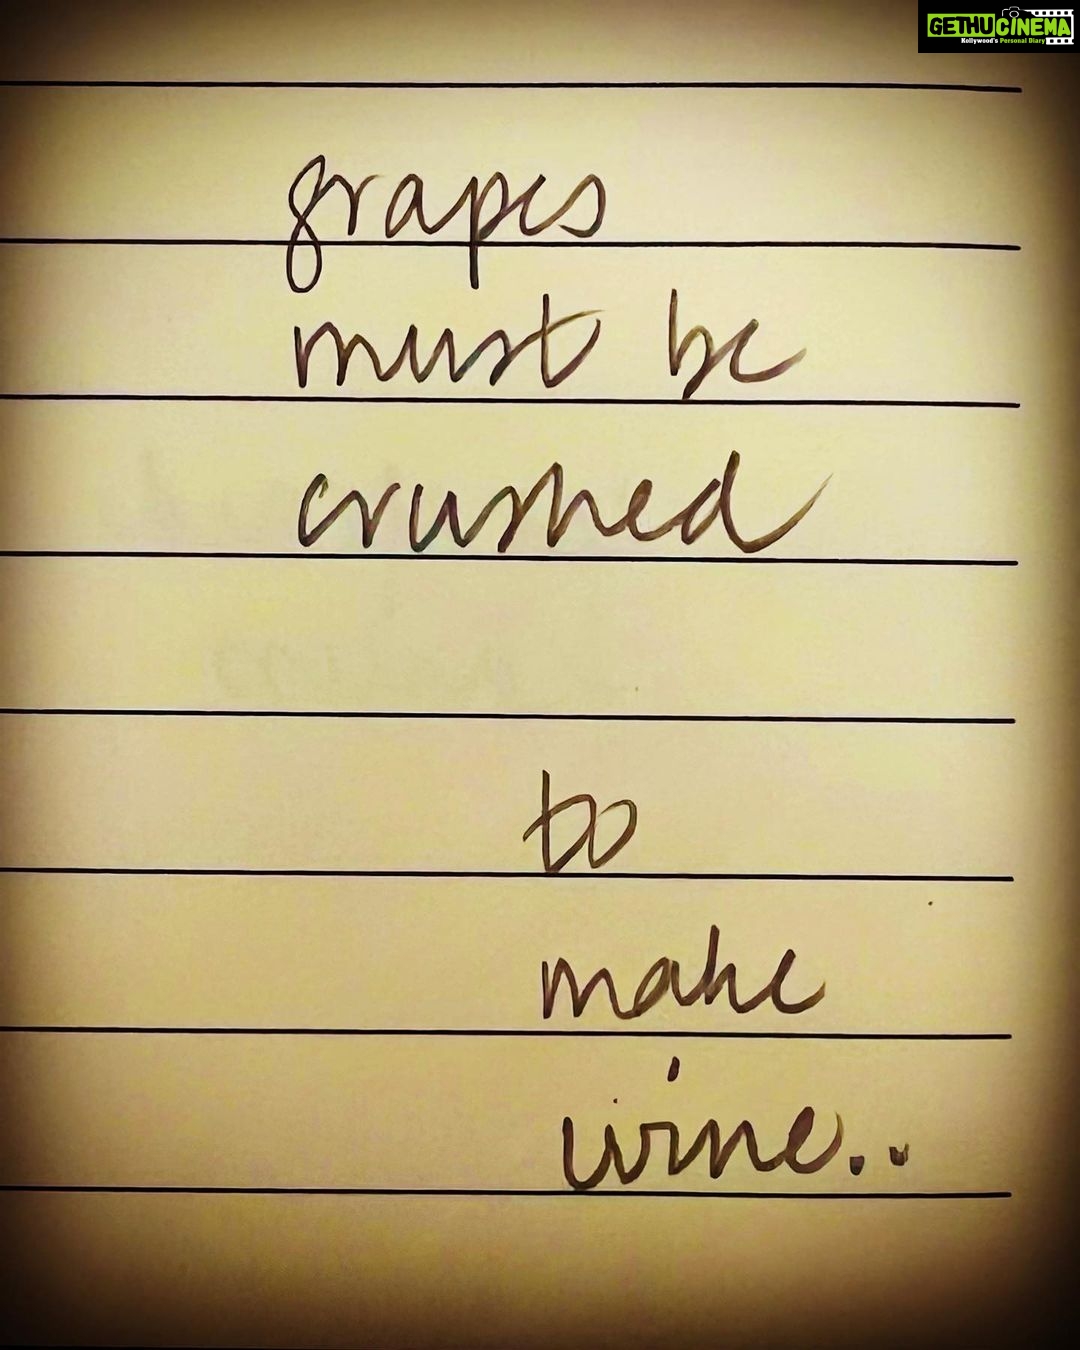 GETHUCINEMA
Kollywood's Personal Diary
grapes
must be
crushed
to
make
wine..